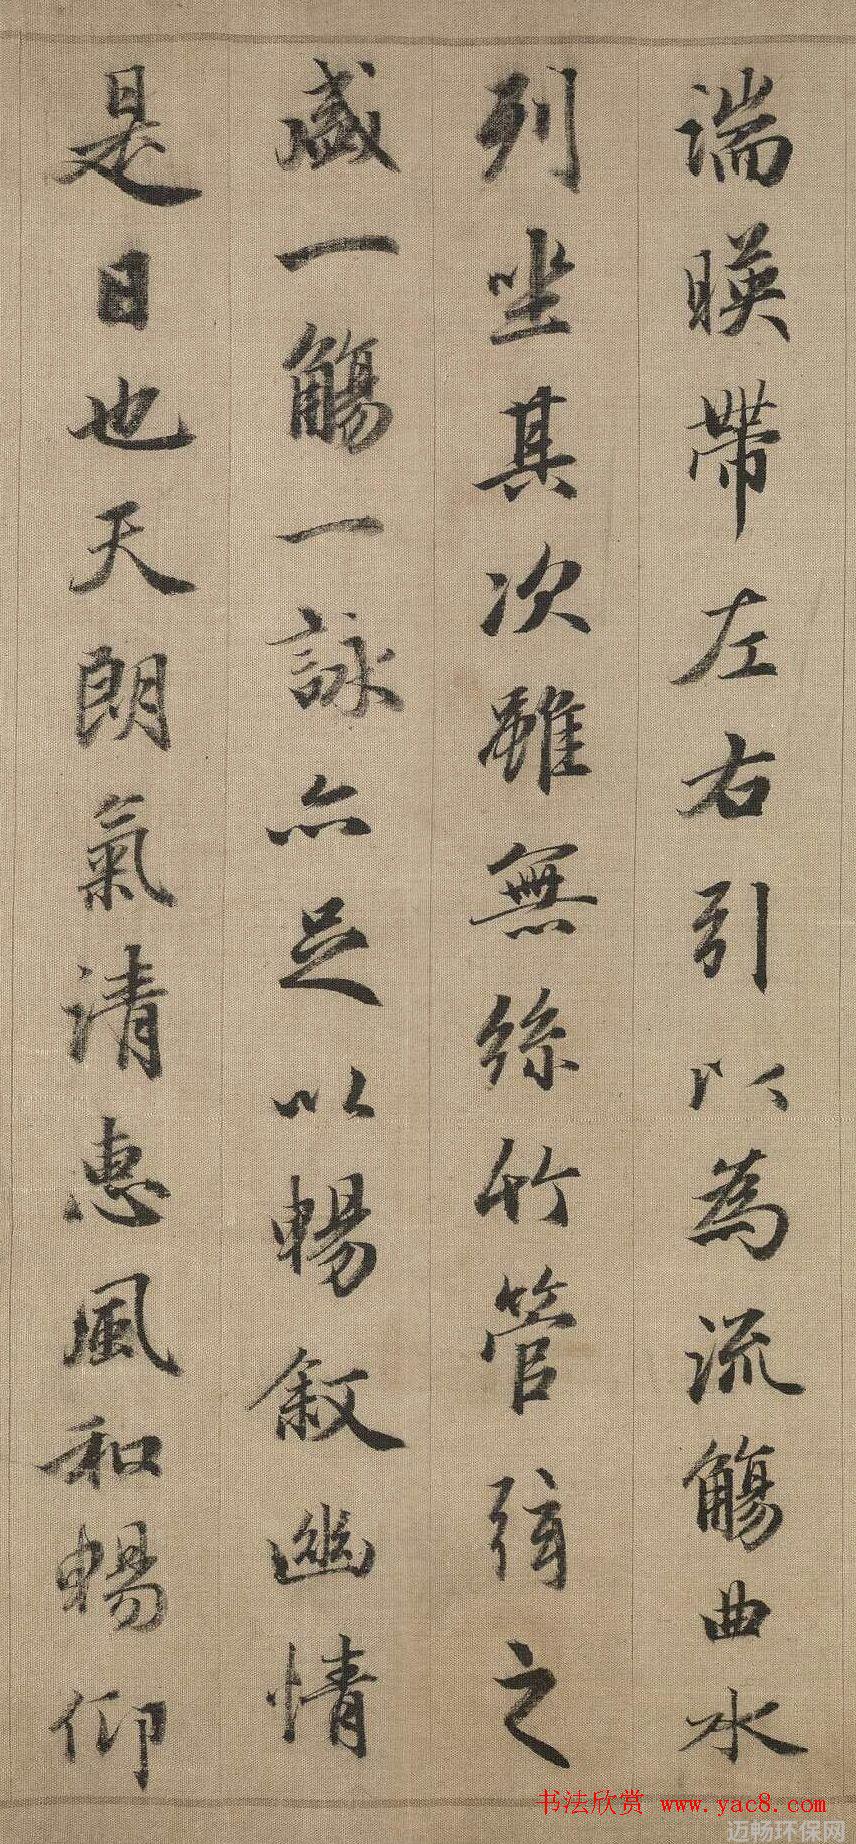 湍暎帶左右引以為流觴曲水
列坐其次雖無絲竹管弦之
盛一觴一詠亦足以暢叙幽情
是日也天朗氣清惠風和暢仰
书法欣赏 www.yac8.com
迈畅环保网